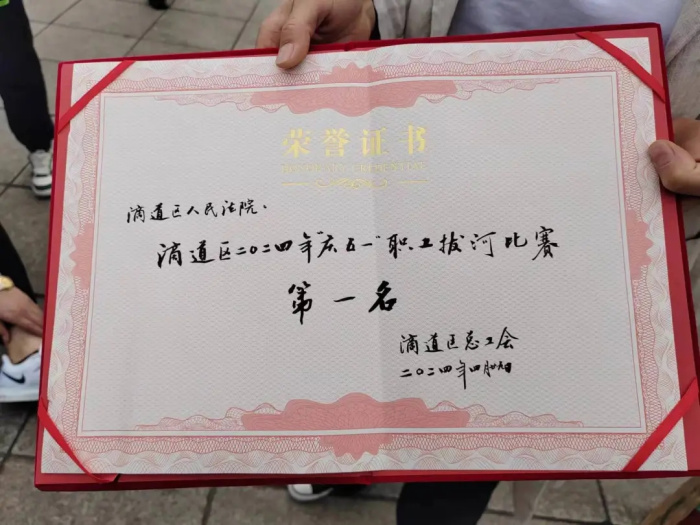 荣誉证书
滴道区人民法院:
滴道区二〇二四年"庆五一"职工拔河比赛
第一名
滴道区总工会
二〇二四年四月